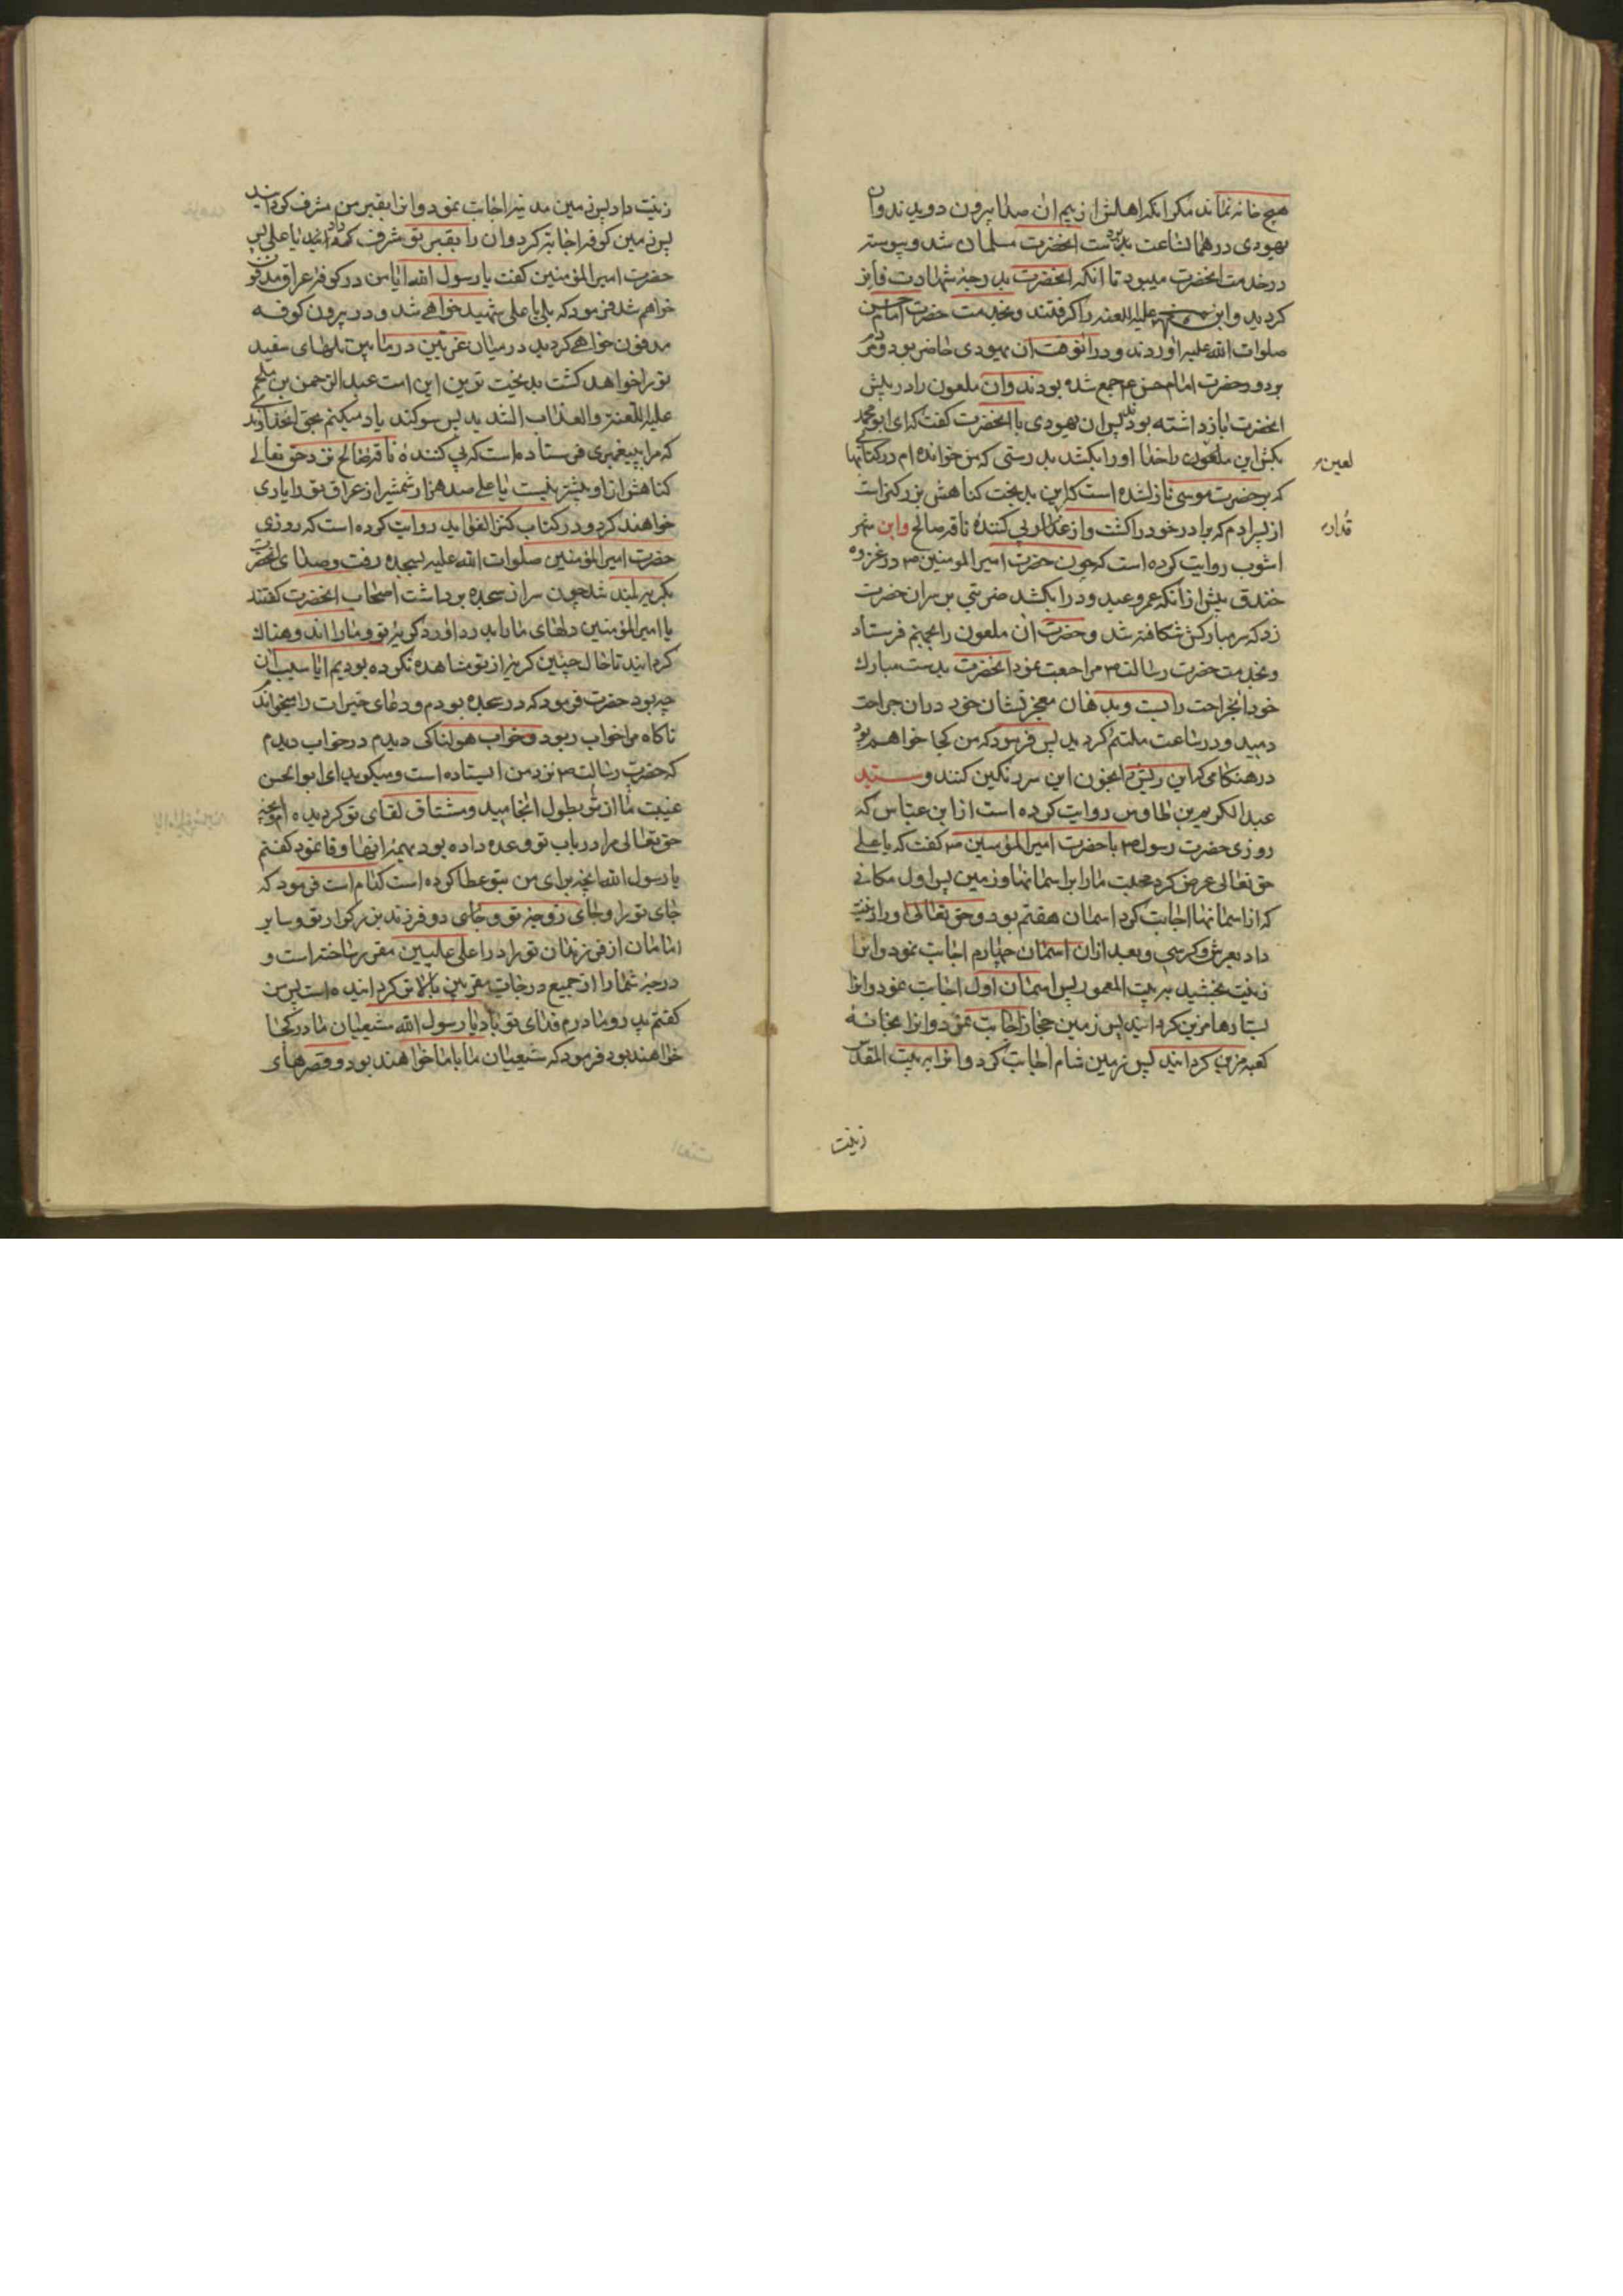 هیچ خانه نماند مکر انکه اهلش از بیم ان صدا بیرون دویدند و ان
یهودی در همان ساعت بدست انحضرت مسلمان شد و پیوسته
در خدمت انحضرت میبود تا انکه انحضرت بدرجهٔ شهادت فایز
کردید و ابن ملجم علیه اللعنه را کرفتند و بخدمت حضرت امام حسن
صلوات الله علیه اوردند و در انوقت ان یهودی حاضر بود و مردم
بر دور حضرت امام حسن ع جمع شده بودند و ان ملعون را در پیش
انحضرت بازداشته بودند پس ان یهودی با انحضرت کفت که ای ابو محمد
بکش این ملعون را خدا او را بکشد بدرستی که من خوانده ام در کتابها
لعین
که بر حضرت موسی نازلشده است که این بدبخت کناهش بزرکتر است
از پسر ادم که برادر خود را کشت و از غدار پی کنندهٔ ناقه صالح وابن شهر
قدار
اشوب روایت کرده است که چون حضرت امیرالمومنین ص در غزوه
خندق پیش از انکه عمرو عبد ود را بکشد ضربتی بر سر ان حضرت
زد که سر مبارکش شکافته شد و حضرت ان ملعون را بجهنم فرستاد
و بخدمت حضرت رسالت ص مراجعت نمود انحضرت بدست مبارک
خود انجراحت را بست و بدهان معجز نشان خود در ان جراحت
دمید و در ساعت ملتئم کردید پس فرمود که من کجا خواهم بود
در هنکامی که این ریش را بخون این سر رنکین کنند و سید
عبد الکریم بن طاوس روایت کرده است از ابن عباس که
روزی حضرت رسول ص با حضرت امیرالمؤمنین ص کفت که یا علی
حق تعالی عرض کرد محبت ما را بر اسمانها و زمین پس اول مکانی
که از اسمانها اجابت کرد اسمان هفتم بود و حق تعالی او را زینت
داد بعرش و کرسی و بعد از ان اسمان چهارم اجابت نمود و انرا
زینت بخشید به بیت المعمور پس اسمان اول اجابت نمود و انرا
بستارها مزین کردانید پس زمین حجاز اجابت نمود و انرا بخانهٔ
کعبه مزین کردانید پس زمین شام اجابت کرد و انرا به بیت المقدس
زینت
زینت داد پس زمین مدینه اجابت نمود و انرا بقبر من مشرف کردانید
پس زمین کوفه اجابت کرد و ان را بقبر تو مشرف کردانید یا علی پس
حضرت امیرالمؤمنین کفت یا رسول الله ایا من در کوفهٔ عراق مدفون
خواهم شد فرمود که بلی یا علی شهید خواهی شد و در بیرون کوفه
مدفون خواهی کردید در میان غریین در مابین تلهای سفید
تو را خواهد کشت بدبخت ترین این امت عبد الرحمن بن ملجم
علیه اللعنة و العذاب الشدید پس سوکند یاد میکنم بحق انخداوندی
که مرا بپیغمبری فرستاده است که پی کننده ناقه صالح نزد حق تعالی
کناهش از او بیشتر نیست یا علی صد هزار شمشیر از عراق تو را یاری
خواهند کرد و در کتاب کنز الفواید روایت کرده است که روزی
حضرت امیرالمؤمنین صلوات الله علیه بسجده رفت و صدای انحضرت
بکریه بلند شد چون سر از سجده برداشت اصحاب انحضرت کفتند
یا امیرالمؤمنین دلهای ما را بدرد اورد کریهٔ تو و ما را اندوهناک
کردانید تا حال چنین کریه از تو مشاهده نکرده بودیم ایا سبب ان
چه بود حضرت فرمود که در سجده بودم و دعای خیرات را میخواندم
ناکاه مرا خواب ربود و خواب هولناکی دیدم در خواب دیدم
که حضرت رسالت ص نزد من ایستاده است و میکوید ای ابو الحسن
غیبت ما از تو بطول انجامید و مشتاق لقای تو کردیده ام و انچه
حق تعالی مرا در باب تو وعده داده بود بهمهٔ انها وفا نمود کفتم
یا رسول الله انچه برای من بتو عطا کرده است کدام است فرمود که
جای تو را و جای زوجهٔ تو و جای دو فرزند بزرکوار تو و سایر
امامان از فرزندان تو را در اعلی علیین مقرر ساخته است و
درجهٔ شما را از جمیع درجات مقربین بالاتر کردانیده است پس من
کفتم پدر و مادرم فدای تو باد یا رسول الله شیعیان ما در کجا
خواهند بود فرمود که شیعیان ما با ما خواهند بود و قصرهای